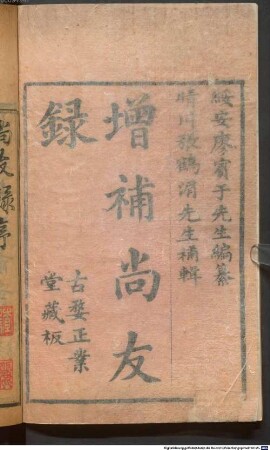 綏安廖賓于先生編纂
晴川放鶴湄先生補輯
增補尚友
錄
古婺正業
堂藏板
尚友錄序